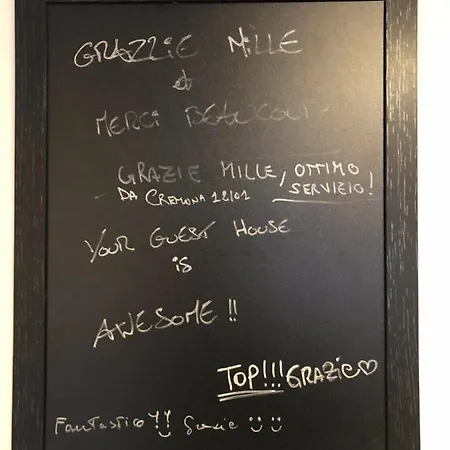 GRAZZIE MILLE
et
MERCI BEAUCOUP
GRAZIE MILLE, OTTIMO
SERVIZIO!
DA CREMONA 12/01
YOUR GUEST HOUSE
is
AWESOME!!
TOP!!! GRAZIE♡
Fantastico!! Grazie